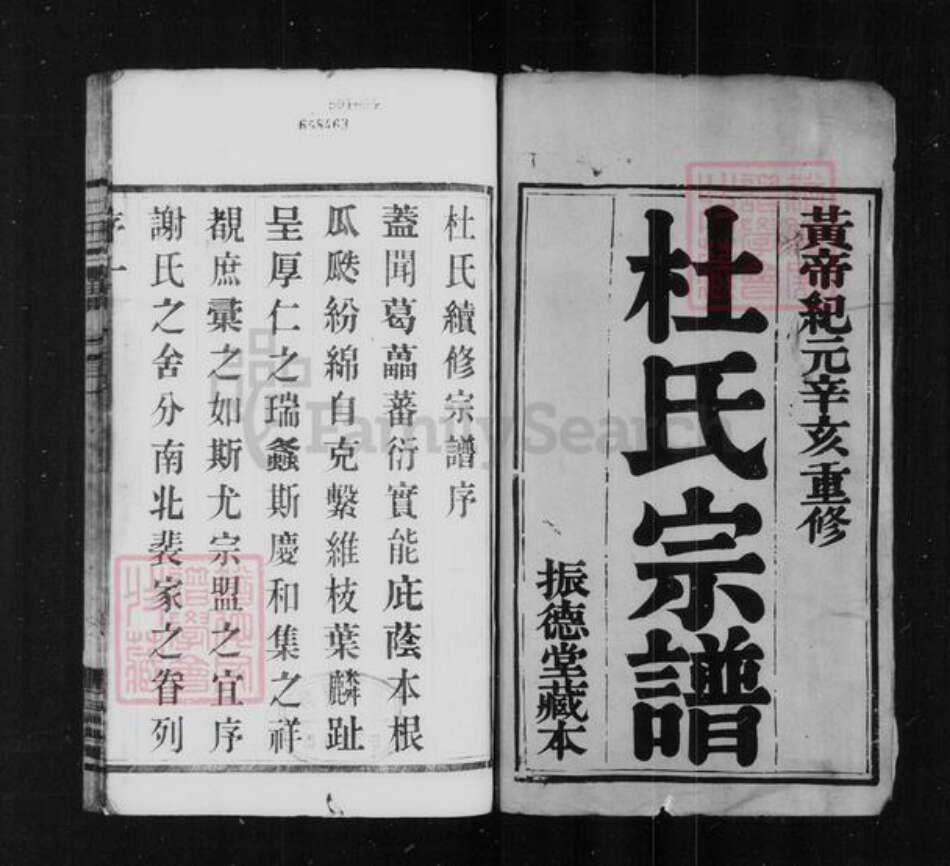 黃帝紀元辛亥重修
杜氏宗譜
振德堂藏本
杜氏續修宗譜序
蓋聞葛藟蕃衍實能庇蔭本根
瓜瓞紛綿自克繫維枝葉麟趾
呈厚仁之瑞螽斯慶和集之祥
覩庶彙之如斯尤宗盟之宜序
謝氏之舍分南北裴家之眷列
序一
648463
FamilySearch